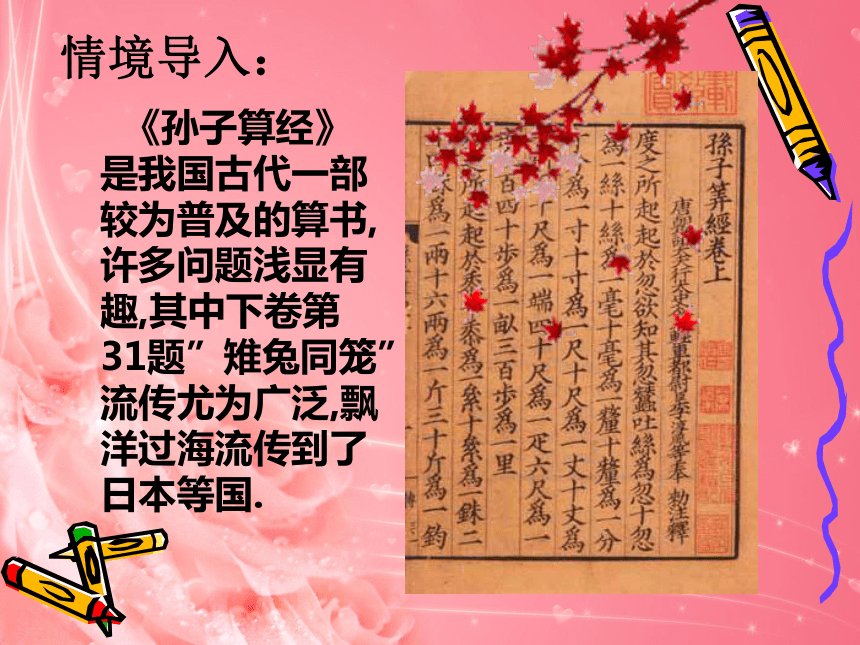 情境导入：
《孙子算经》
是我国古代一部
较为普及的算书,
许多问题浅显有
趣,其中下卷第
31题”雉兔同笼”
流传尤为广泛,飘
洋过海流传到了
日本等国.
孫子筭經卷上
唐朝議大夫行太史令上輕車都尉臣李淳風等奉 勅注釋
度之所起起於忽欲知其忽蠶吐絲為忽十忽
為一絲十絲為一毫十毫為一釐十釐為一分
十分為一寸十寸為一尺十尺為一丈十丈為
十尺為一端四十尺為一疋六尺為一
百四十歩為一畝三百歩為一里
之所起起於黍十黍為一絫十絫為一銖二
十四銖為一兩十六兩為一斤三十斤為一鈞